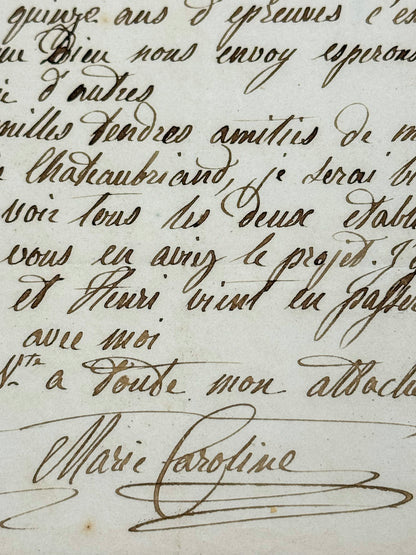 quinze ans d'epreuves c'es
Dieu nous envoy esperons
d'autres
milles tendres amities de m
Chateaubriand, je serai b
voir tous les deux etab
vous en aviez le projet. J'
et Henri vient en passer
avec moi
V.te a toute mon attache
Marie Caroline